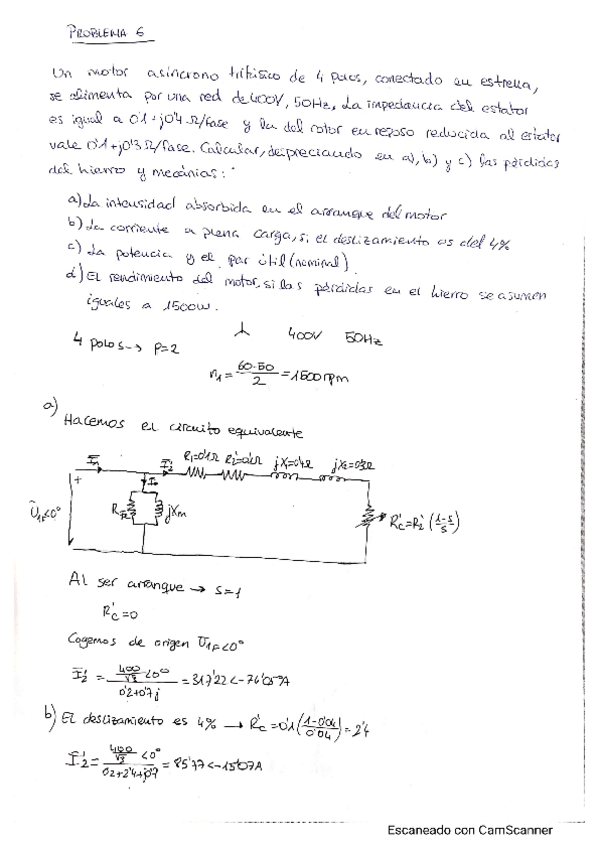 PROBLEMA 6
Un motor asíncrono trifásico de 4 polos, conectado en estrella,
se alimenta por una red de 400V, 50Hz, La impedancia del estator
es igual a 0'1+j0'4 Ω/fase y la del rotor en reposo reducida al estator
vale 0'1+j0'3 Ω/fase. Calcular, despreciando en a), b) y c) las pérdidas
del hierro y mecánicas:
a) La intensidad absorbida en el arranque del motor
b) La corriente a plena carga, si el deslizamiento es del 4%
c) La potencia y el par útil (nominal)
d) El rendimiento del motor, si las pérdidas en el hierro se asumen
iguales a 1500W.
4 polos → P=2
400V 50Hz
n₁ = 60·50/2 = 1500 rpm
a)
Hacemos el circuito equivalente
I₁ I₂' R₁=0'1Ω R₂'=0'1Ω jX₁=0'4Ω jX₂=0'3Ω
+ I₀
U₁F<0° R_Fe jXm R'c=R₂'(1-s/s)
Al ser arranque → s=1
R'c=0
Cogemos de origen U₁F<0°
I₂' = 400/√3 <0° / 0'2+0'7j = 317'22<-74'05ºA
b) El deslizamiento es 4% → R'c=0'1(1-0'04/0'04)=2'4
I₂' = 400/√3 <0° / 0'2+2'4+j0'7 = 85'77<-15'07A
Escaneado con CamScanner